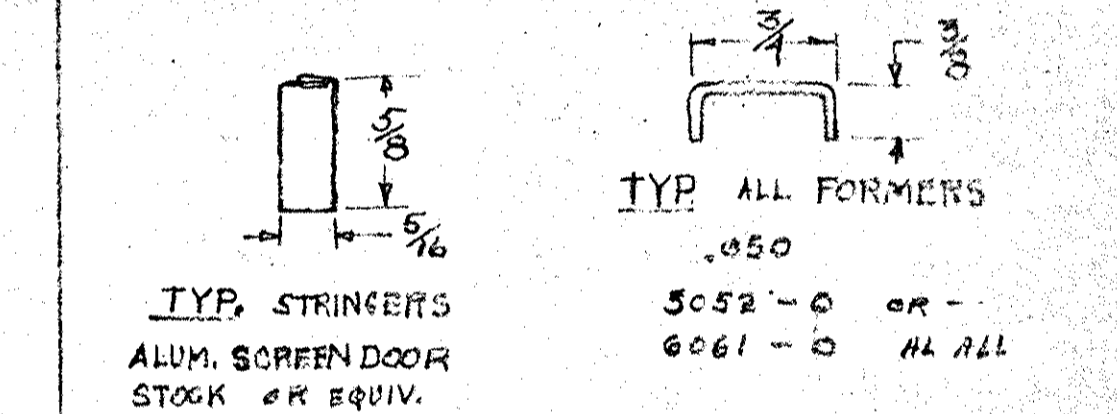 5/8
5/16
TYP. STRINGERS
ALUM. SCREEN DOOR
STOCK OR EQUIV.
3/4
3/8
TYP. ALL FORMERS
.050
5052-0 OR -
6061-0 AL ALL